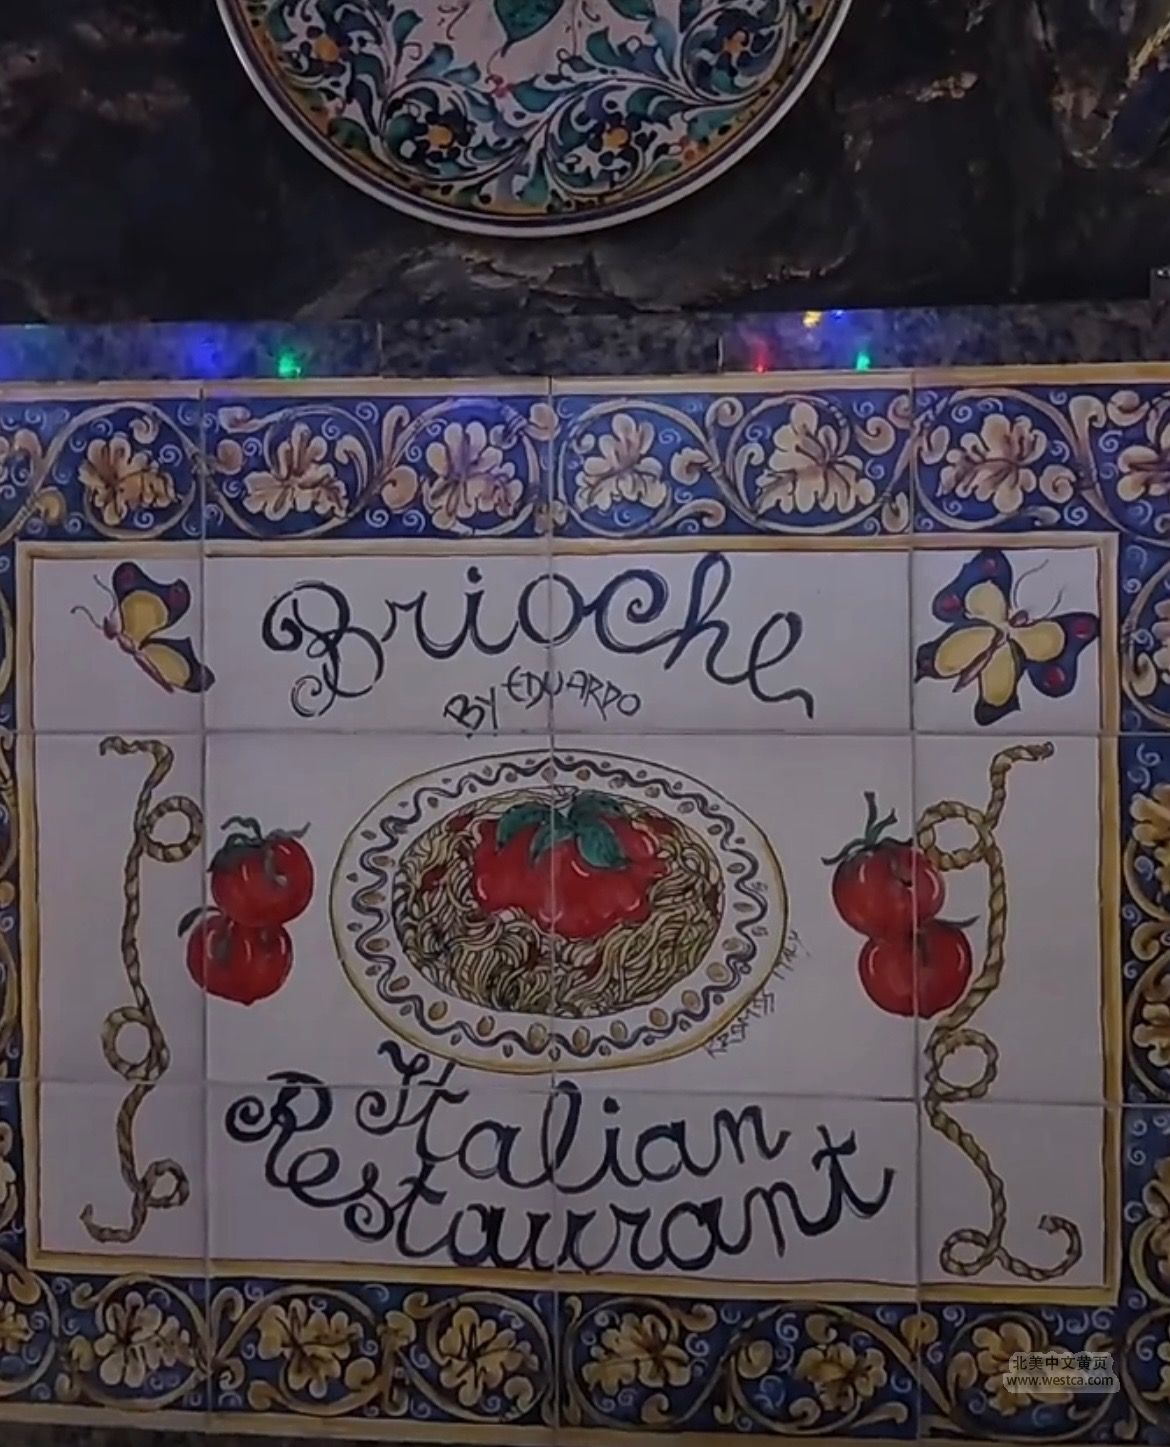 Brioche
BY EDUARDO
Italian
Restaurant
北美中文黄页
www.westca.com